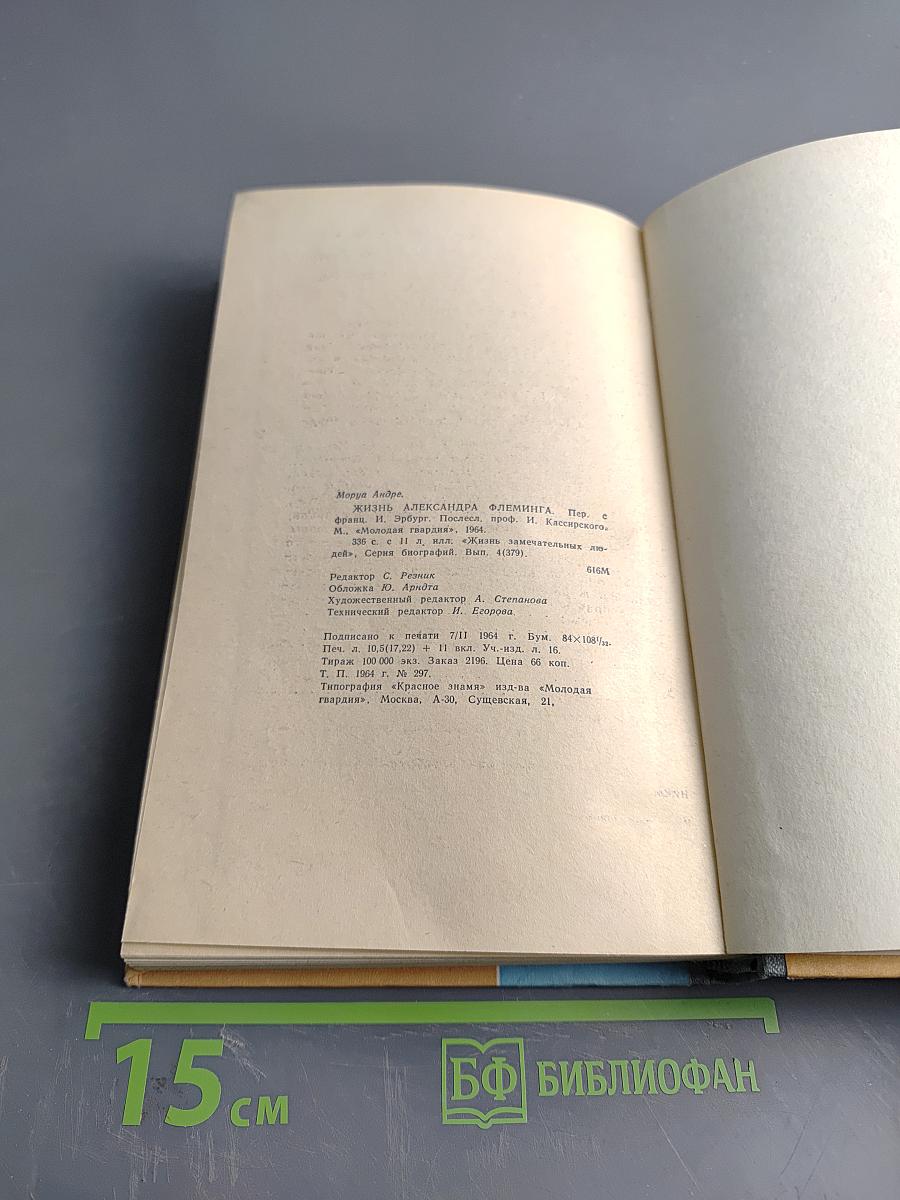 Моруа Андре.
ЖИЗНЬ АЛЕКСАНДРА ФЛЕМИНГА. Пер. с
франц. И. Эрбург. Послесл. проф. И. Кассирского.
М., «Молодая гвардия», 1964.
336 с. с 11 л. илл. «Жизнь замечательных лю-
дей», Серия биографий. Вып. 4(379).
616М
Редактор С. Резник
Обложка Ю. Арндта
Художественный редактор А. Степанова
Технический редактор И. Егорова.
Подписано к печати 7/II 1964 г. Бум. 84×108¹/₃₂.
Печ. л. 10,5(17,22) + 11 вкл. Уч.-изд. л. 16.
Тираж 100 000 экз. Заказ 2196. Цена 66 коп.
Т. П. 1964 г. № 297.
Типография «Красное знамя» изд-ва «Молодая
гвардия», Москва, А-30, Сущевская, 21,
15 см
БФ БИБЛИОФАН